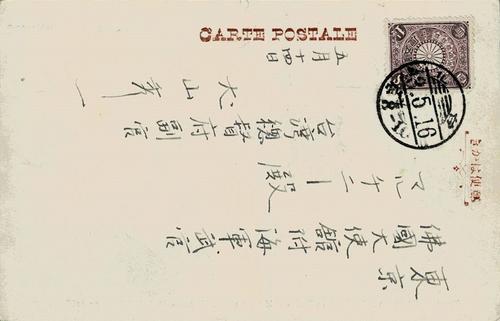 CARTE POSTALE
きかは便郵
東京
佛國大使館附海軍武官
マルチニー殿
台湾總督府副官
大山 一
五月十四日
5.16